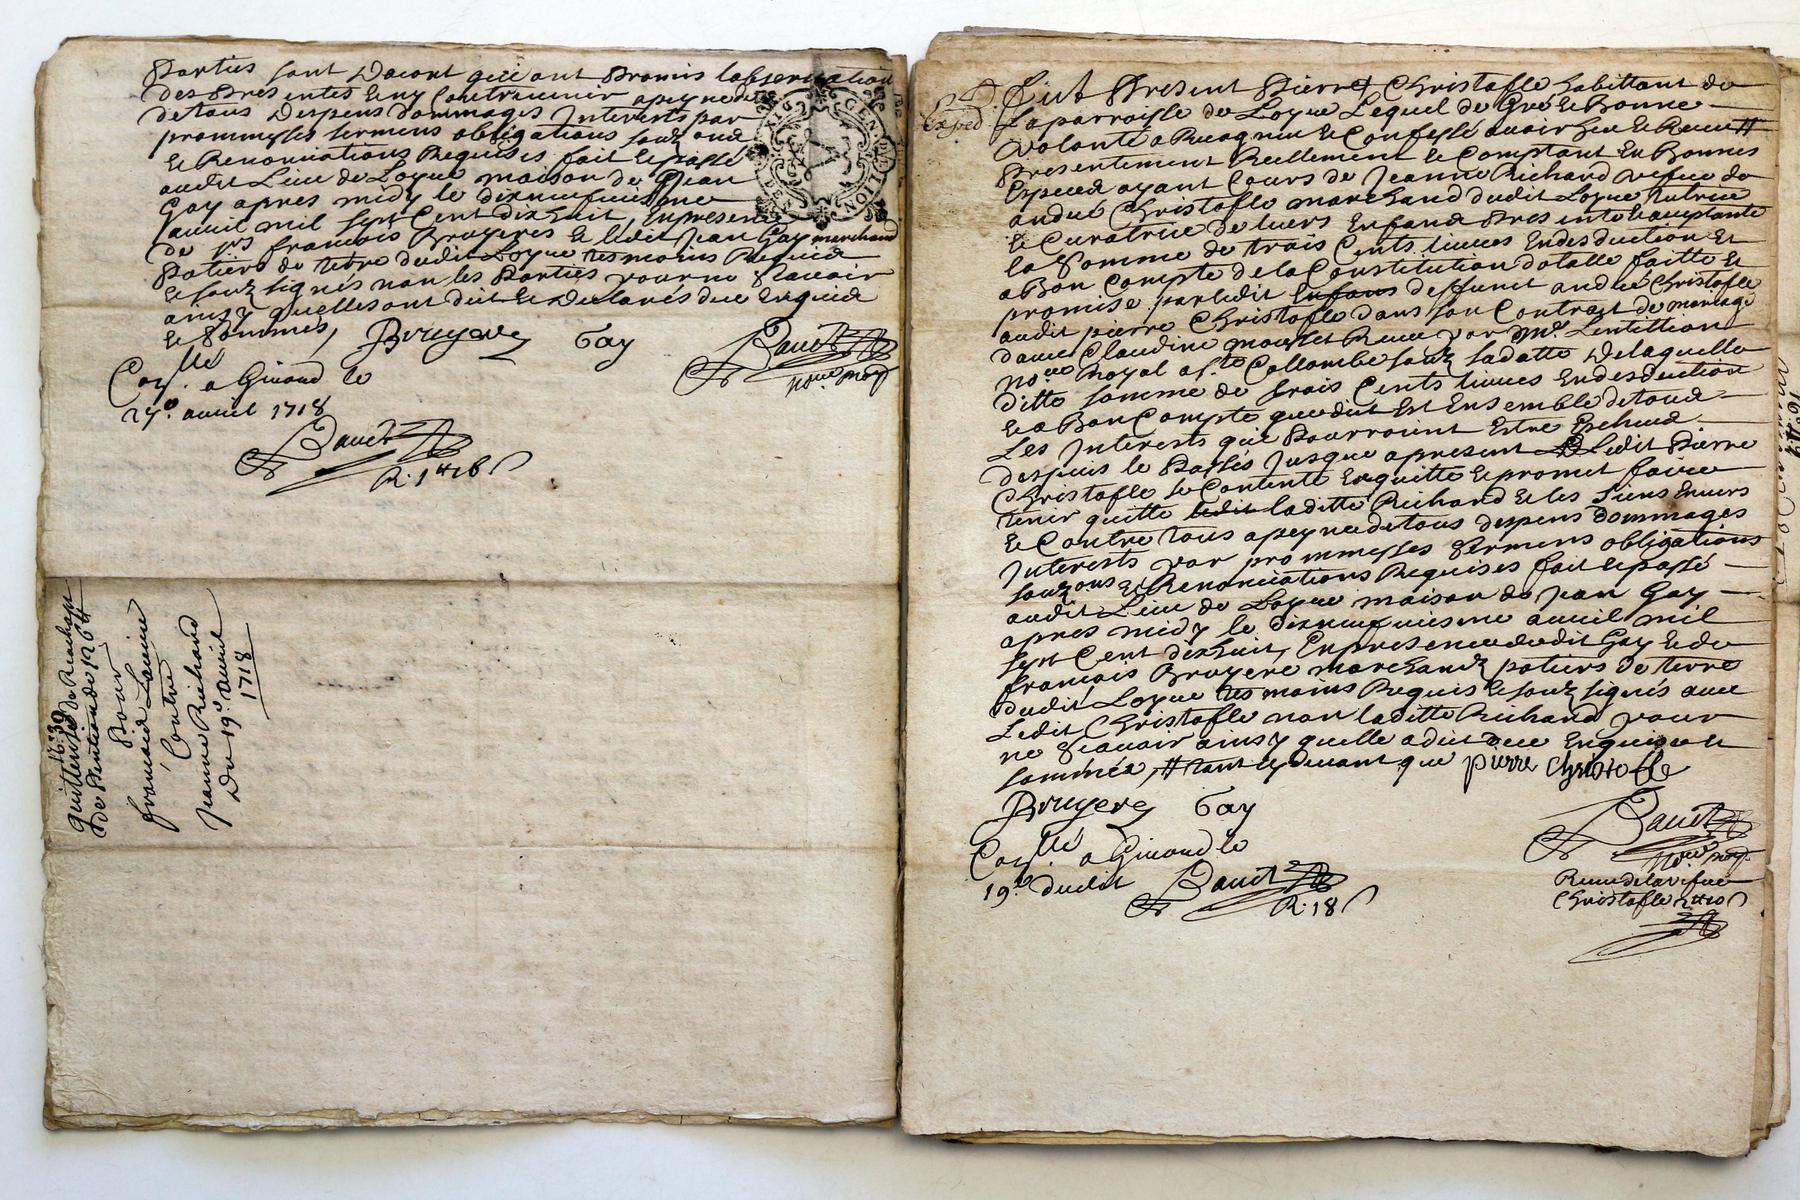 Parties sont Dacort qui ont Promis labservation
des Presentes Et ny Contrevenir apeyne de
detous Despens dommages Interests par
prommesses sermens obligations souz ons
Et Renonciations Requises fait Et passé
audit Lieu de Loyue maison de Jean
Gay apres midy le dixneufuiesme
auuil mil sept Cent dix huit, En presence
de srs francois Bruyeres Et ledit Jean Gay marchand
Potiers de terre dudit Loyue tesmoins Requis
Et souz signés non les Parties pour ne scauoir
ainsy quelles ont dit Et declarés deue Enquis
Et sommés,
Bruyere Gay
Cor.llé a Giuaud le
27e. auuil 1718
R. 1tt 16 s
quittense de
de Pention de 126tt
Pour
francoise
Contre
Jeanne Richard
Du 19e. auuil
1718
Exped
Fut Present Pierre Christofle habittant de
La parroisse de Loyue Lequel de Gre Et Bonne
Volonté a Recogneu Et Confessé auoir heu Et Receu #
Presentement Reellement Et Comptant En Bonnes
Especes ayant Cours de Jeanne Richard vefue de
andué Christofle marchand dudit Loyue tutrice
Et Curatrice de leurs Enfans Presente Et aceptante
la Somme de trois Cents liures En desduction Et
a Bon Compte de la Constitution dotalle faitte Et
promise par ledit Enfans deffunct andué Christofle
audit pierre Christofle dans son Contract de mariage
dauec Claudine mousset Receu par Me. Lentillion
nore Royal a ste Collombe souz sa datte De laquelle
ditte somme de trois Cents liures En desduction
Et a Bon Compte que dit Est Ensemble de tous
Les Interests qui Pourroient Estre Escheus
despuis le Passés Jusque apresent ledit Pierre
Christofle se Contente En quitte Et promet faire
tenir quitte ledit laditte Richard Et les Siens Enuers
Et Contre tous apeyne de tous despens dommages
Interests par prommesses sermens obligations
souz ons Et Renonciations Requises fait Et passé
audit Lieu de Loyue maison de Jean Gay
apres midy le dixneufuiesme auuil mil
sept Cent dix huit, En presence dudit Gay Et de
francois Bruyere marchandz potiers de terre
dudit Loyue tesmoins Requis Et souz signés auec
Ledit Christofle non laditte Richard pour
ne scauoir ainsy quelle a dit deue Enquise Et
sommée, # tant cy deuant que pierre Christofle
Bruyere Gay
Cor.llé a Giuaud le
19e. dudit
R. 18 s
Receu de la vefue
Christofle 2tt 10 s